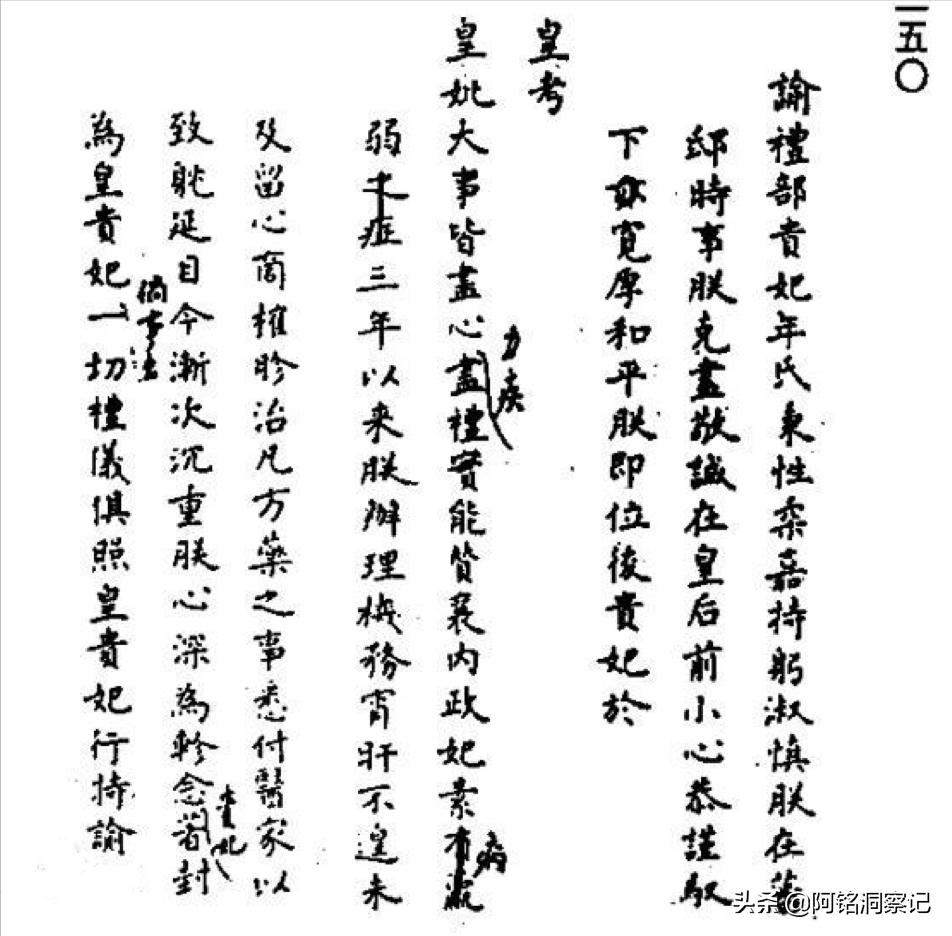 一五〇
諭禮部貴妃年氏秉性柔嘉持躬淑慎朕在藩
邸時事朕克盡敬誠在皇后前小心恭謹馭
下亦寬厚和平朕即位後貴妃於
皇考
力疾
病
皇妣大事皆盡心盡禮實能贊襄內政妃素有羸
弱之症三年以来朕辦理機務宵旰不遑未
及留心商榷胗治凡方藥之事悉付醫家以
貴妃
致躭延目今漸次沉重朕心深為軫念著封
倘事
為皇貴妃一切禮儀俱照皇貴妃行特諭
头条@阿铭洞察记